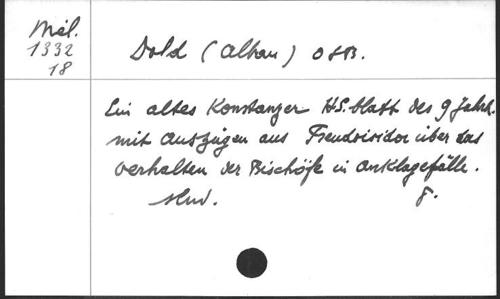 Mél.
1332
18
Dold (Alban) OSB.
Ein altes Konstanzer HS.blatt des 9 Jahrh.
mit Auszügen aus Pseudoisidor über das
Verhalten der Bischöfe in Anklagefälle.
8.